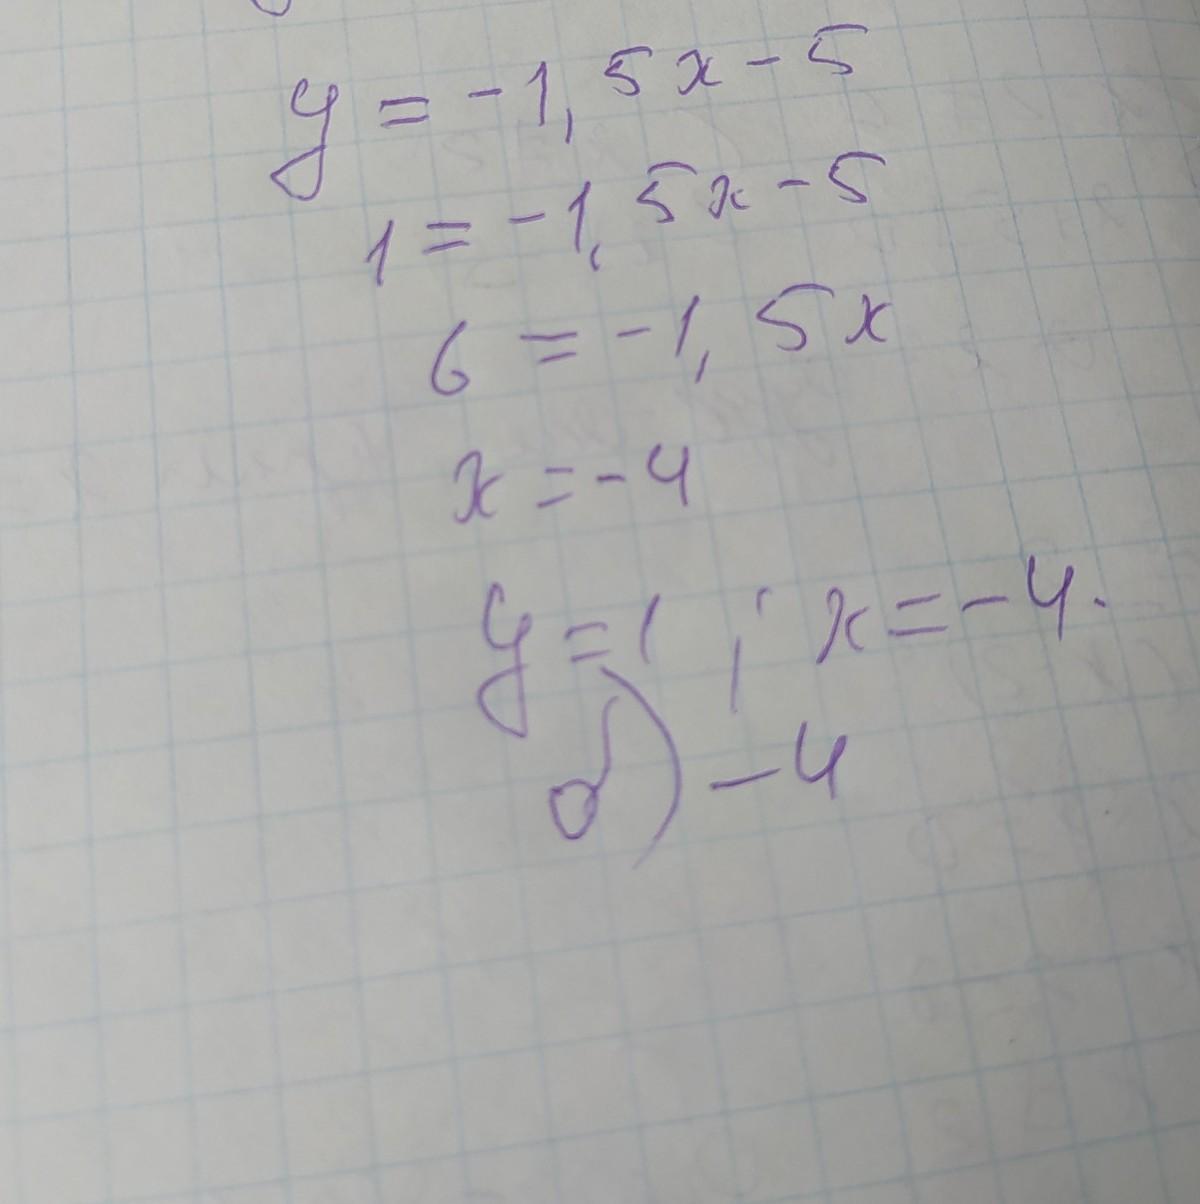 y = -1,5x - 5
1 = -1,5x - 5
6 = -1,5x
x = -4
y = 1; x = -4.
б) -4